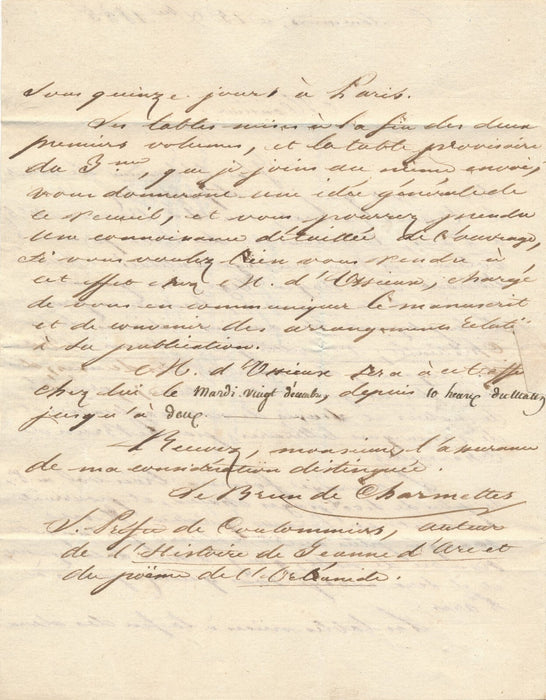 Sous quinze jours à Paris.
Les tables mises à la fin des deux
premiers volumes, et la table provisoire
du 3.me, que je joins au même envoi,
vous donneront une idée générale de
ce recueil, et vous pourrez prendre
une connaissance détaillée de l'ouvrage,
si vous voulez bien vous rendre à
cet effet chez M. d'Ossieux, chargé
de vous en communiquer le manuscrit
et de convenir des arrangements relatifs
à sa publication.
M. d'Ossieux sera à cet effet
chez lui le Mardi vingt décembre, depuis 10 heures du matin
jusqu'à deux.
Recevez, monsieur, l'assurance
de ma considération distinguée.
Le Brun de Charmettes
S. Préfet de Coulommiers, auteur
de l'Histoire de Jeanne d'Arc et
du poëme de l'Orléanide.